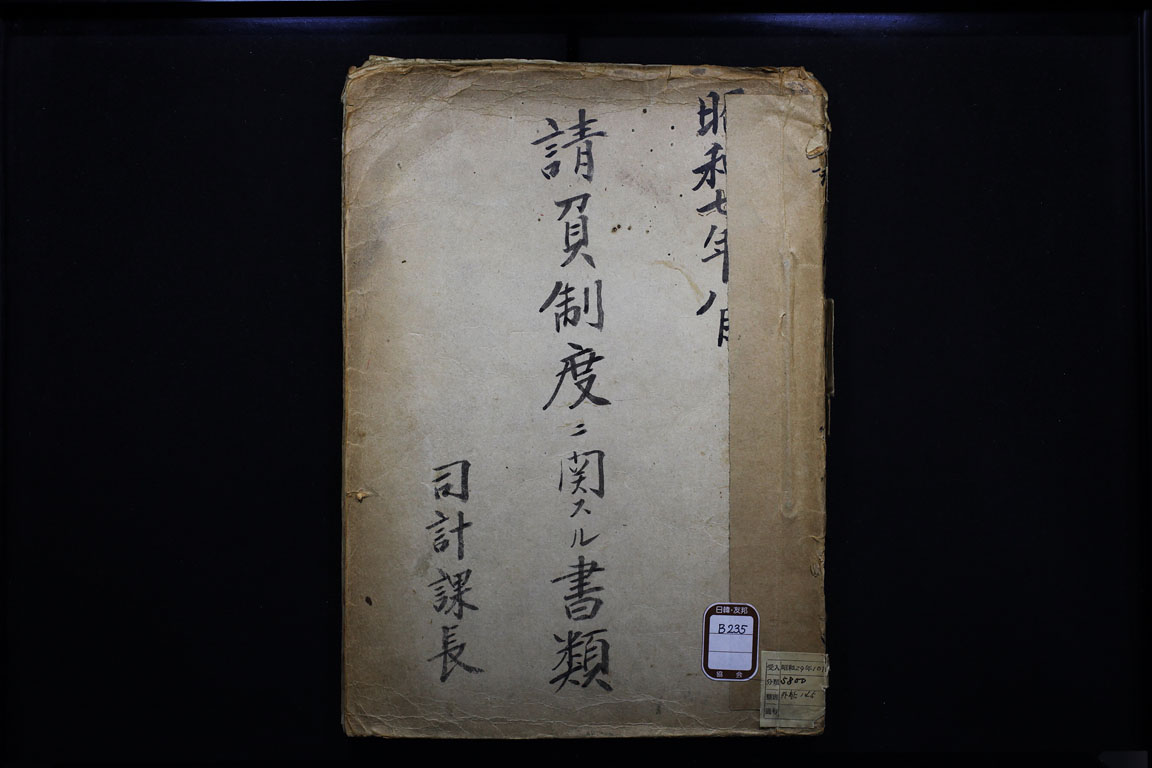 昭和七年八月
請負制度ニ関スル書類
司計課長
日韓・友邦
B235
協会
受入 昭和29年10月
分類 5800
番号